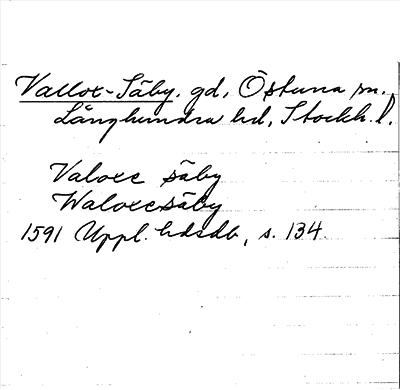 Vallox-Säby. gd, Östuna sn.,
Långhundra hd, Stockh. l.
Valoxe säby
Waloxesäby
1591 Uppl. hdsdb, s. 134.